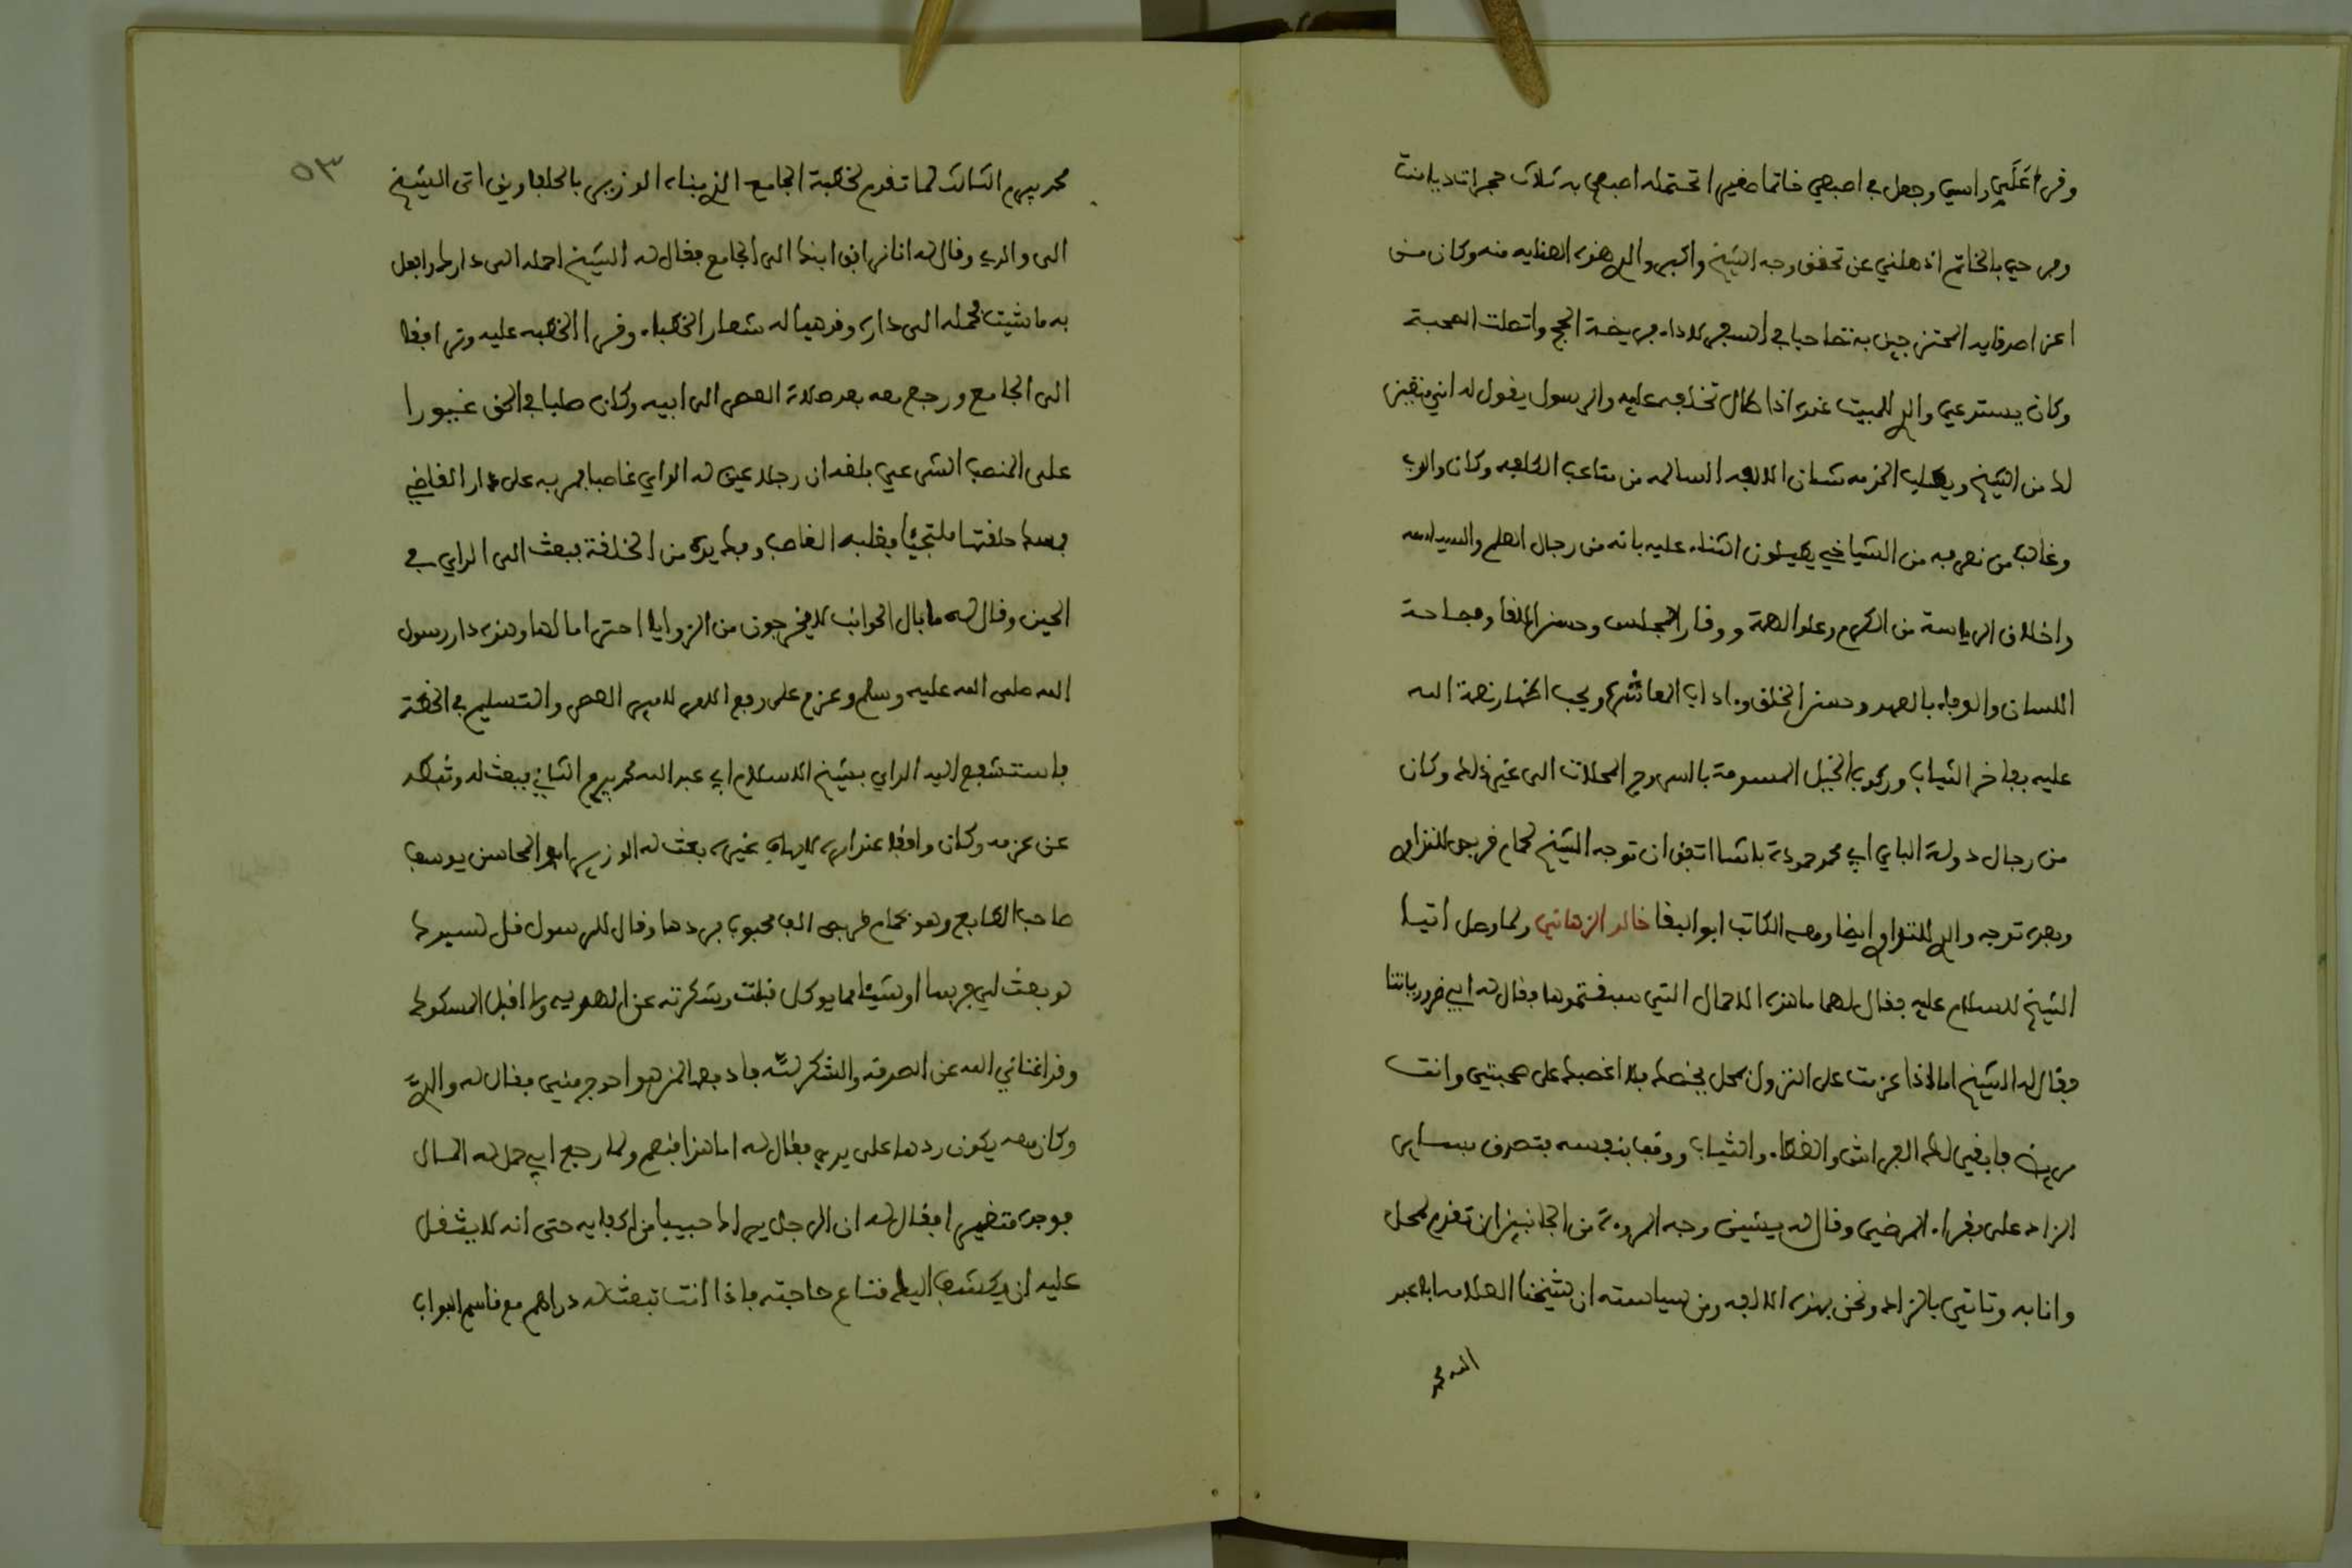 وقرا عَلَى راسي وجعل في اصبعي خاتما صغيرا تحتمله اصبعي به ثلاث حجرات ديامنت
وفرحي بالخاتم اذهلني عن تحقق وجه الشيخ واكبر والدي هذه العنايه منه وكان من
اعز اصدقايه الممتزجين به تصاحبا في السفر لاداء فريضة الحج واتصلت الصحبة
وكان يستدعي والدي للمبيت عنده اذا طال تخلفه عليه والرسول يقول له
لك من الشيخ ويطلب الخزمه شان الالفه السالمه من متاعب الكلفه وكان والدي
وغالب من نعرفه من الشياخي يطيلون الثناء عليه بانه من رجال العلم والسياسه
واخلاق الرياسة من الكرم وعلو الهمة ووقار المجلس وحسن اللقا وفصاحة
اللسان والوفاء بالعهد وحسن الخلق وءاداب المعاشره ويحب اظهار نعمة الله
عليه بفاخر الثياب وركوب الخيل المسومة بالسروج المحلات الى غير ذلك وكان
من رجال دولة الباي ابي محمد حمودة باشا اتفق ان توجه الشيخ لحمام قربص للتداوي
وبعده توجه والدي للتداوي ايضا ومعه الكاتب ابو البقا خالد الزهاني ولما وصل اتيا
الشيخ للسلام عليه فقال لهما ما هذه الاحمال التي سبقتموها فقال له ابي ضرورياتنا
فقال له الشيخ اما اذا عزمت على النزول بمحل يخصك فلا اغصبك على صحبتي وانت
مريض فابقي لك الفراش والغطاء والثياب ووقف بنفسه يتصرف بساير
الزاد على فقراء المرضى وقال له يشين وجه المروءة من الجانبين ان تقدم لمحل
وانا به وتاتي بالزاد ونحن بهذه الالفه ومن سياسته ان شيخنا العلامه ابا عبد
الله محمد
محمد بيرم الثالث لما تقدم لخطبة الجامع الذي بناه الوزير بالحلفاوين اتى الشيخ
الى والدي وقال له انا نرافق ابنك الى الجامع فقال له الشيخ احمله الى دارك وافعل
به ما شيت فحمله الى داره وقد هيا له شعار الخطباء وقرا الخطبه عليه وترافقا
الى الجامع ورجع معه بعد صلاة العصر الى ابيه وكان صلبا في الحق غيورا
على المنصب الشرعي بلغه ان رجلا عين له الداي غاصبا فمر به على دار القاضي
فمسك حلقتها ملتجيا فغلبه الغاصب وفك يده من الحلقة فبعث الى الداي في
الحين وقال له ما بال الحوانب لا يخرجون من الزوايا احتراما لها وهذه دار رسول
الله صلى الله عليه وسلم وعزم على رفع الامر لامير العصر والتسليم في الخطة
فاستشفع اليه الداي بشيخ الاسلام ابي عبد الله محمد بيرم الثاني فبعث له وثبطه
عن عزمه وكان واقفا عند رايه لا يهاب غيره بعث له الوزير ابو المحاسن يوسف
صاحب الطابع وهو بحمام قربص الف محبوب فردها وقال للرسول قل لسيدك
لو بعث لي فرسا او شيئا مما يوكل قبلت وشكرته عن الهديه ولا اقبل المسكوك
وقد اغناني الله عن الصدقه والشكر لله فادفعه لمن هو احوج مني فقال له والدي
وكان معه يكون ردها على يدي فقال له اما هذا فنعم ولما رجع ابي حمل له المال
فوجده متغيرا فقال له ان الرجل يراك حبيبا من احبابه حتى انه لا يثقل
عليه ان يكتشف اليك متاع حاجته فاذا انت تبعث له دراهم مع قاسم البواب
٥٣